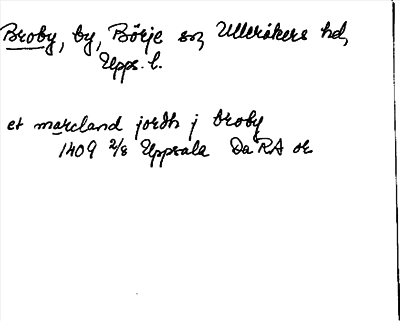 Broby, by, Börje sn, Ulleråkers hd,
Upps. l.
et marcland jordh j broby
1409 2/8 Uppsala Da RA or.